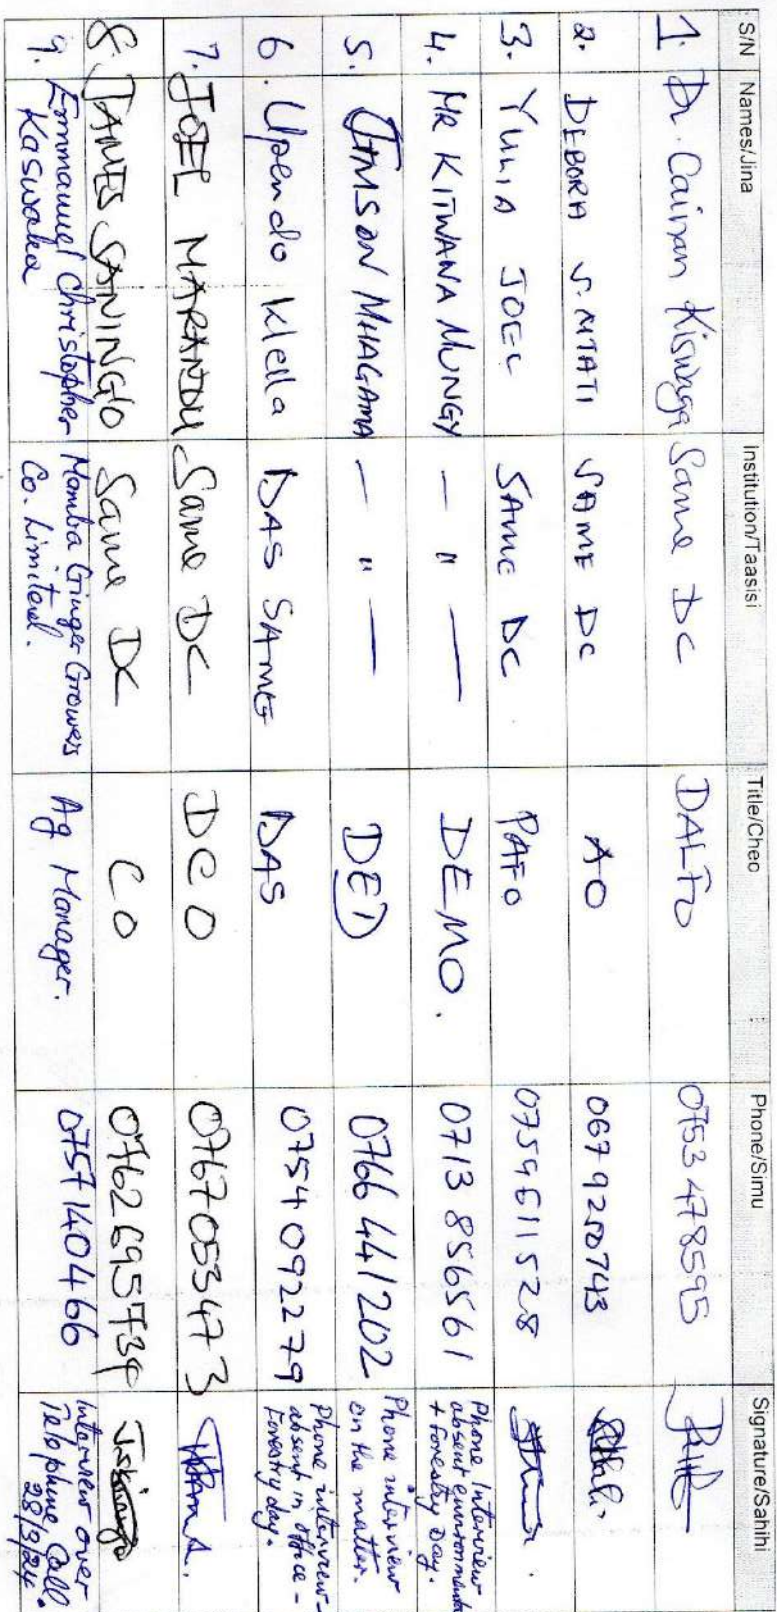 S/N Names/Jina Institution/Taasisi Title/Cheo Phone/Simu Signature/Sahihi
1. Dr. Cainan Kiswaga Same DC DALFO 0753 478595
2. DEBORA S. MTATI SAME DC AO 0679250743
3. YULIA JOEL SAME DC PAFO 0759611528
4. MR KITWANA MUNGY — " — DEMO. 0713 856561 Phone Interview
absent environmental
+ Forestry Day.
5. JIMSON MHAGAMA — " — DED 0766 441202 Phone interview
on the matter.
6. Upendo Klella DAS SAME DAS 0754 092279 Phone interview-
absent in office -
Forestry day.
7. JOEL MARANDU Same DC DCO 0767053473
8. JAMES SANINGO Same DC CO
9. Emmanuel Christopher
Kaswaka
Momba Ginger Growers
Co. Limited.
Ag Manager.
0757140466
Interview over
Telephone Call.
28/3/24